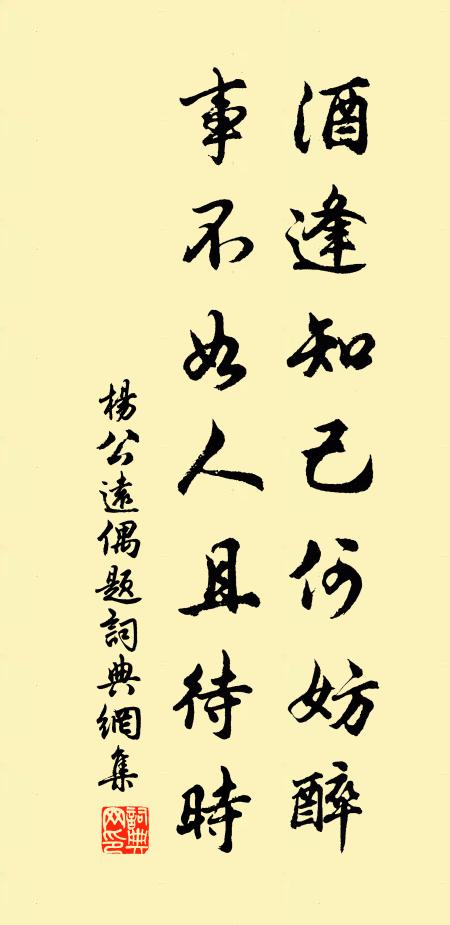 酒逢知己何妨醉
事不如人且待時
楊公遠偶題詞典網集
詞典網印